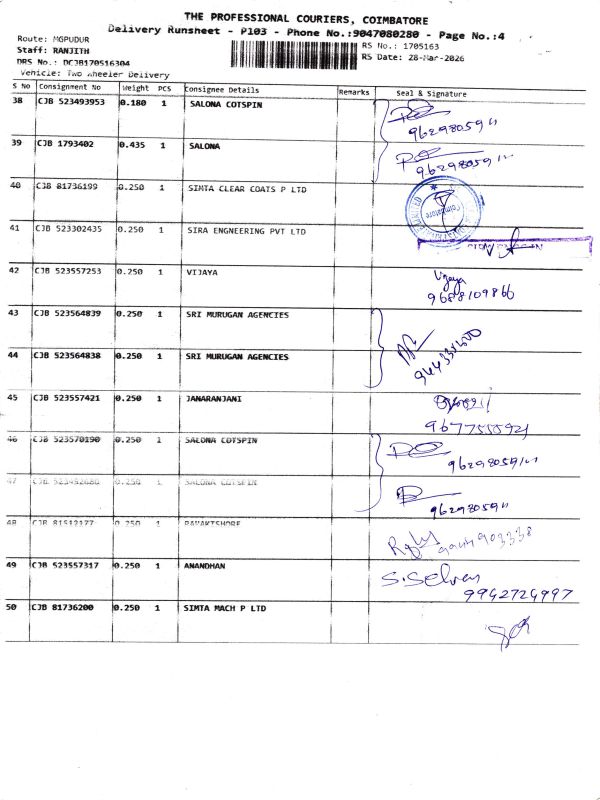 THE PROFESSIONAL COURIERS, COIMBATORE
Delivery Runsheet - P103 - Phone No.:9047080280 - Page No.:4
Route: MGPUDUR
RS No.: 1705163
Staff: RANJITH
RS Date: 28-Mar-2026
DRS No.: DCJB170516304
Vehicle: Two Wheeler Delivery
S No Consignment No Weight PCS Consignee Details Remarks Seal & Signature
38 CJB 523493953 0.180 1 SALONA COTSPIN
39 CJB 1793402 0.435 1 SALONA
40 CJB 81736199 0.250 1 SIMTA CLEAR COATS P LTD
Coimbatore
41 CJB 523302435 0.250 1 SIRA ENGNEERING PVT LTD
42 CJB 523557253 0.250 1 VIJAYA Vijaya
9688109866
43 CJB 523564839 0.250 1 SRI MURUGAN AGENCIES
44 CJB 523564838 0.250 1 SRI MURUGAN AGENCIES
45 CJB 523557421 0.250 1 JANARANJANI
46 CJB 523570190 0.250 1 SALONA COTSPIN
47 CJB 523492680 0.250 1 SALONA COTSPIN
48 CJB 81512177 0.250 1 RAVAKISHORE
49 CJB 523557317 0.250 1 ANANDHAN S.Selvan
9942724997
50 CJB 81736200 0.250 1 SIMTA MACH P LTD